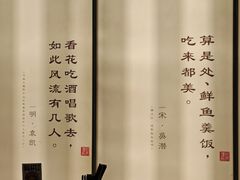 算是处、鲜鱼羹饭，
吃来都美。
—宋·吴潜
看花吃酒唱歌去，
如此风流有几人。
—明·袁凯